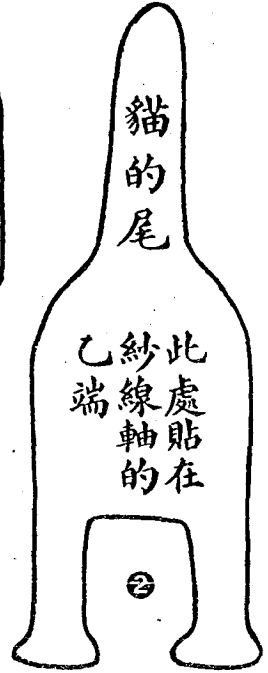 貓的尾
此處貼在
紗線軸的
乙端
2